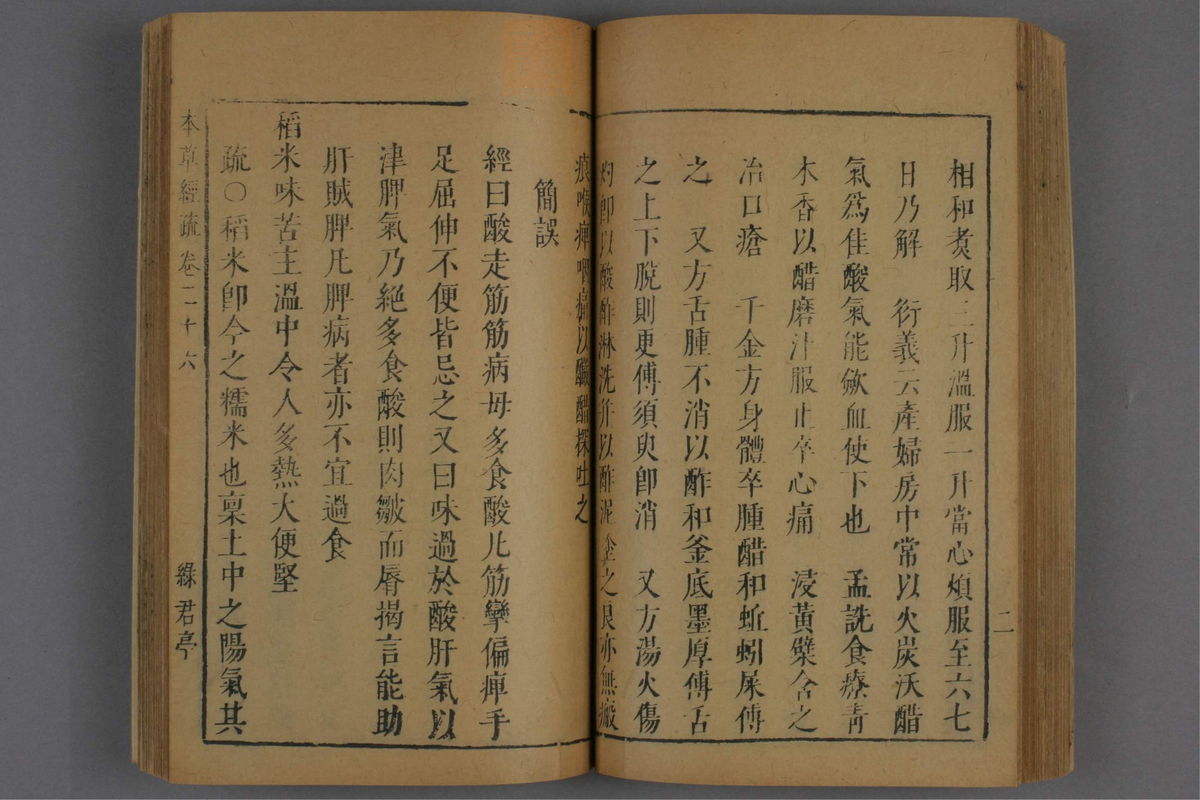 二
相和煑取三升溫服一升當心煩服至六七
日乃解　衍義云產婦房中常以火炭沃醋
氣爲佳酸氣能斂血使下也　孟詵食療靑
木香以醋磨汁服止卒心痛　浸黃檗含之
治口瘡　千金方身體卒腫醋和蚯蚓屎傅
之　又方舌腫不消以酢和釜底墨厚傅舌
之上下脫則更傅須臾卽消　又方湯火傷
灼卽以酸酢淋洗幷以酢泥塗之良亦無瘢
痕喉痺咽痛以釅醋探吐之
簡誤
經曰酸走筋筋病毋多食酸凡筋攣偏痺手
足屈伸不便皆忌之又曰味過於酸肝氣以
津脾氣乃絕多食酸則肉皺而脣揭言能助
肝賊脾凡脾病者亦不宜過食
稻米味苦主溫中令人多熱大便堅
疏○稻米卽今之糯米也稟土中之陽氣其
本草經疏 卷二十六 綠君亭